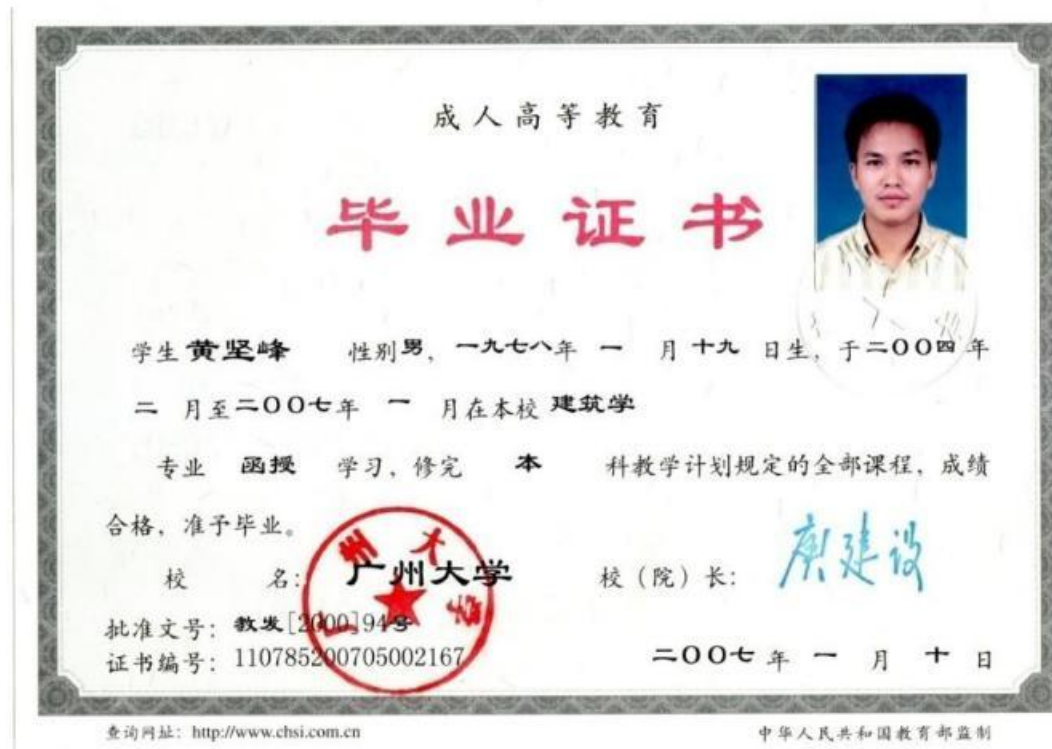 成人高等教育
毕业证书
学生 黄坚峰 性别 男，一九七八年 一 月 十九 日生，于二〇〇四 年
二 月至二〇〇七年 一 月在本校 建筑学
专业 函授 学习，修完 本 科教学计划规定的全部课程，成绩
合格，准予毕业。
校 名：广州大学 校（院）长：庾建设
广州大学
批准文号：教发[2000]94号
证书编号：110785200705002167
二〇〇七 年 一 月 十 日
查询网址：http://www.chsi.com.cn 中华人民共和国教育部监制